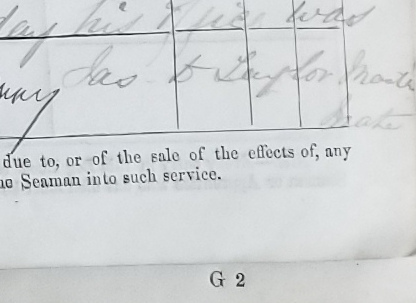 day his
was
Jas Taylor
due to, or of the sale of the effects of, any
Seaman into such service.
G 2